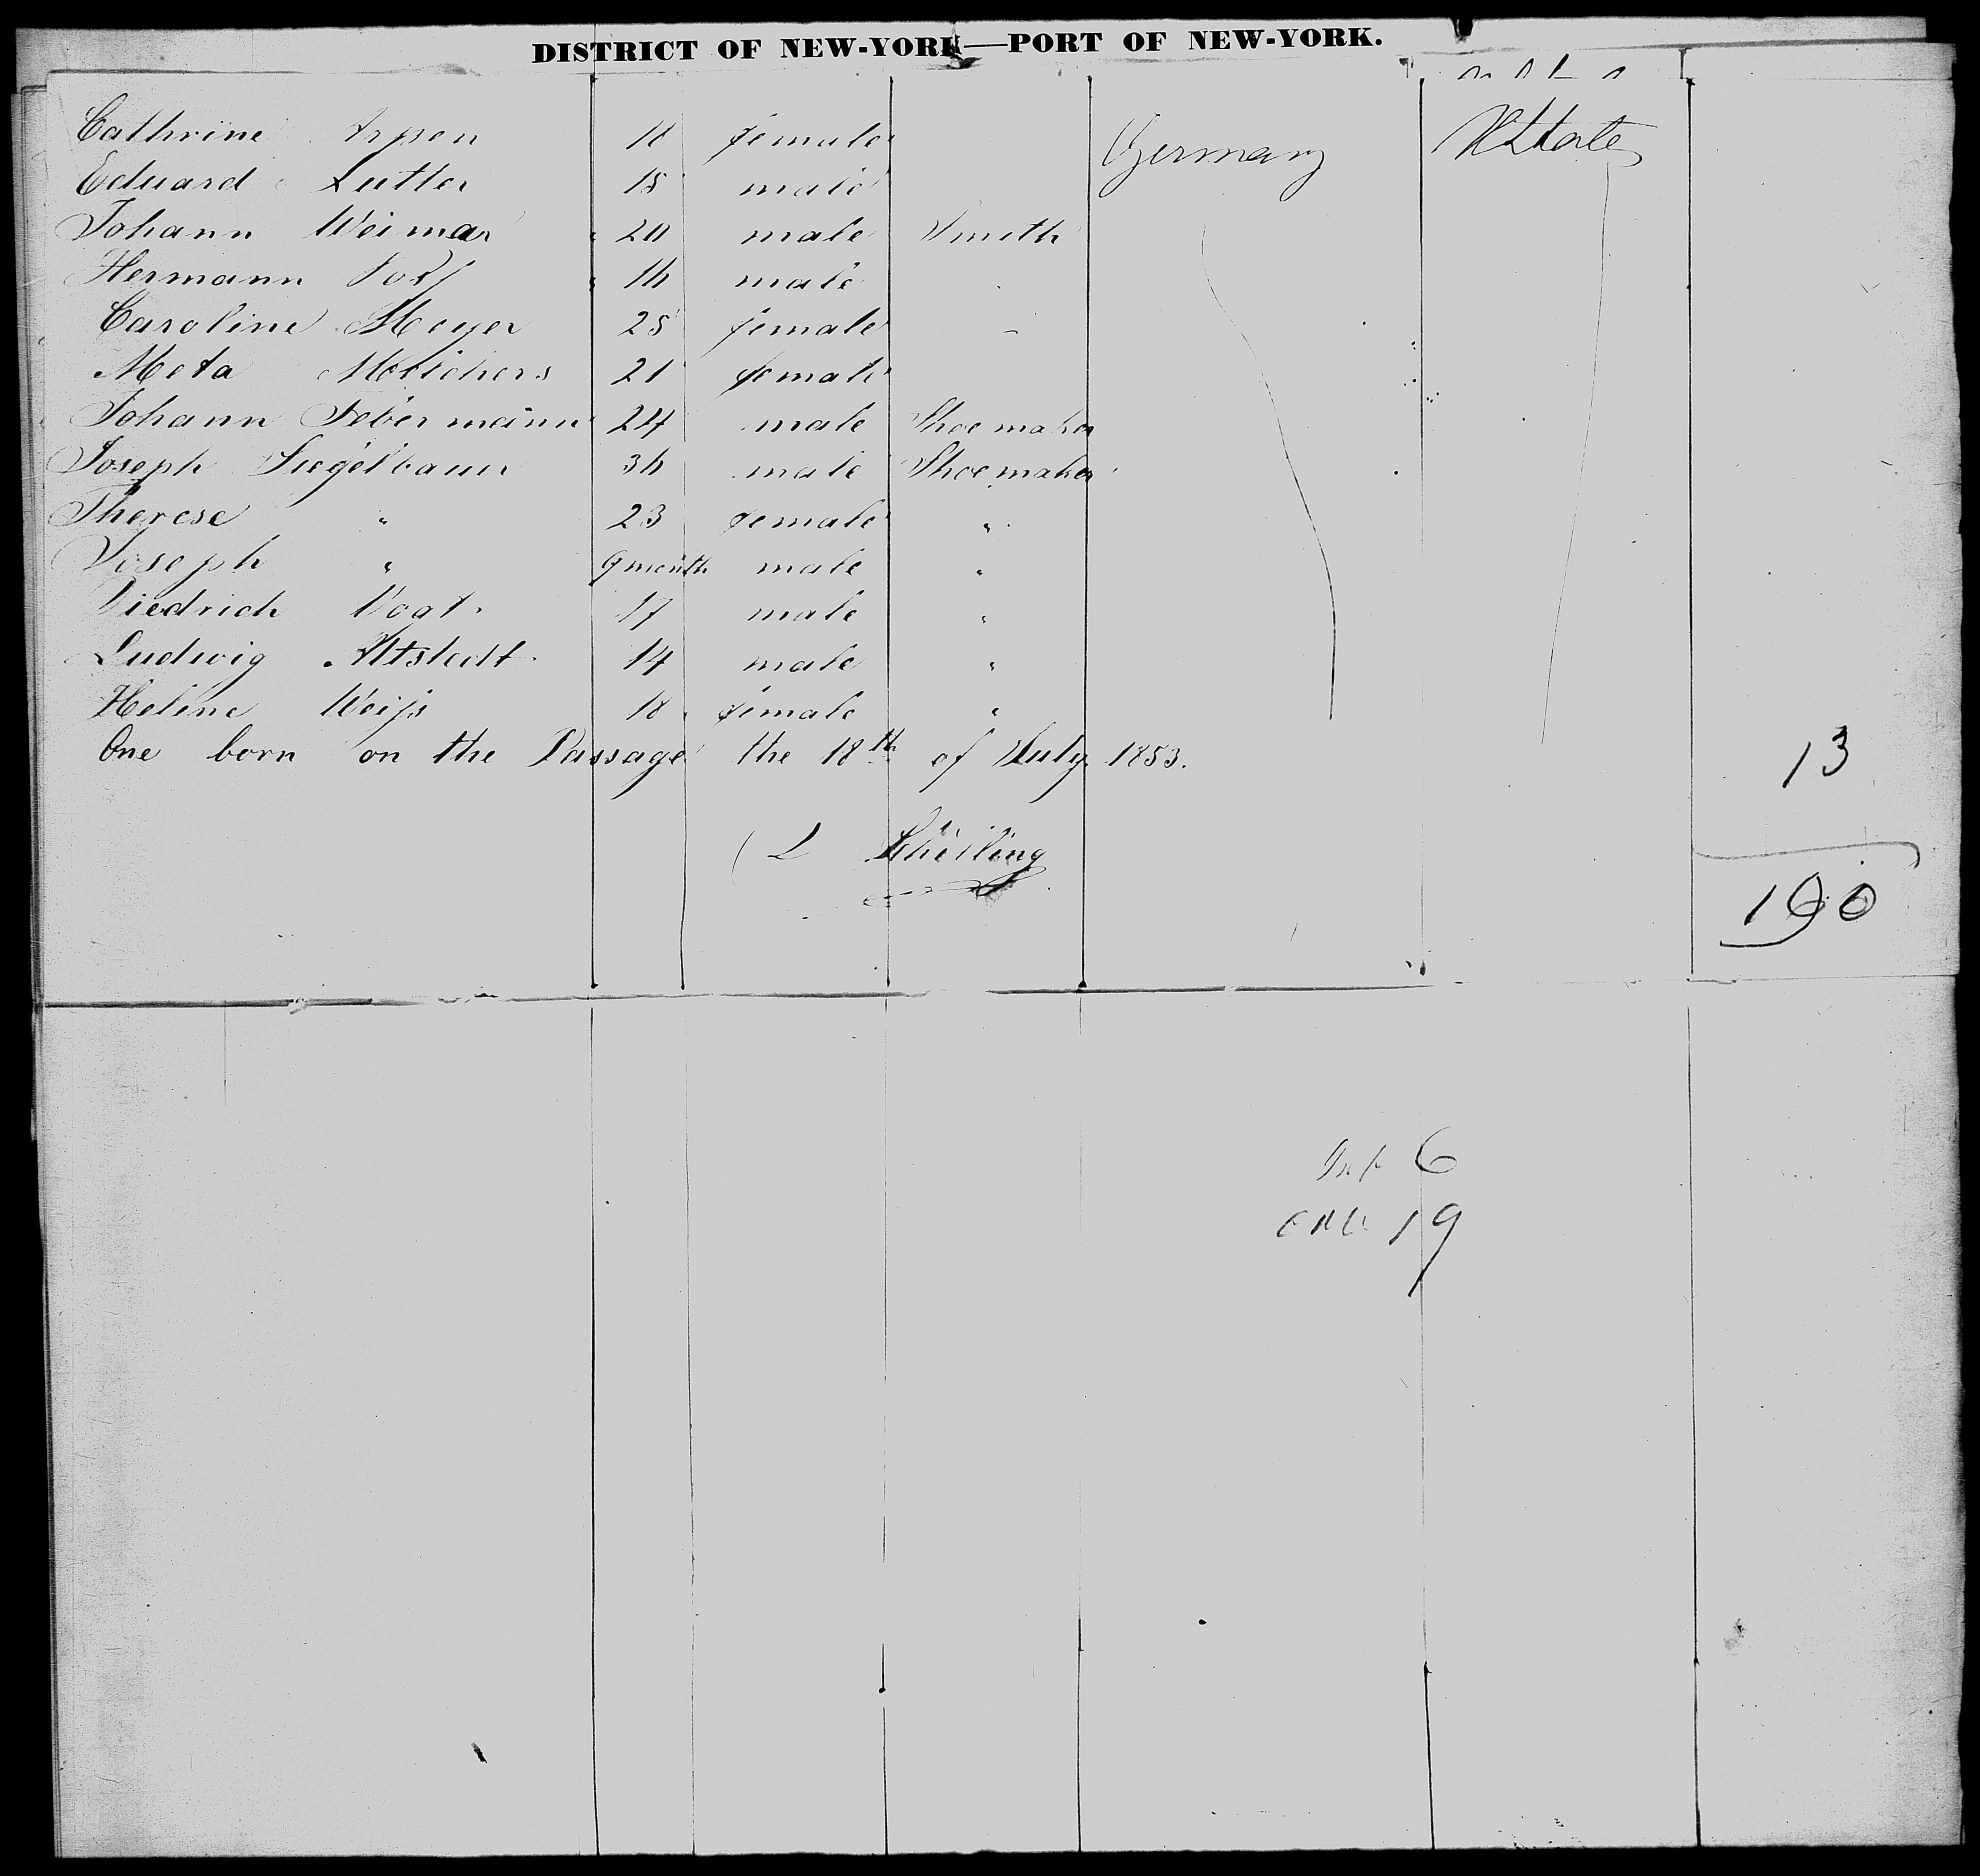 DISTRICT OF NEW-YORK—PORT OF NEW-YORK.
Cathrine Arpen 18 female Germany UStates
Eduard 18 male
Johann Weimar 20 male Smith
Hermann 16 male
Caroline Meyer 25 female -
Meta Melchers 21 female
Johann Febermann 24 male Shoemaker
Joseph Siegelbaum 36 male Shoemaker
Therese " 23 female "
Joseph " 9 month male "
Diedrich Vogt. 17 male "
Ludwig Altstedt. 14 male "
Heline Weiss 18 female "
One born on the Passage the 18th of July 1853. 13
L Schilling
190
Inf 6
19